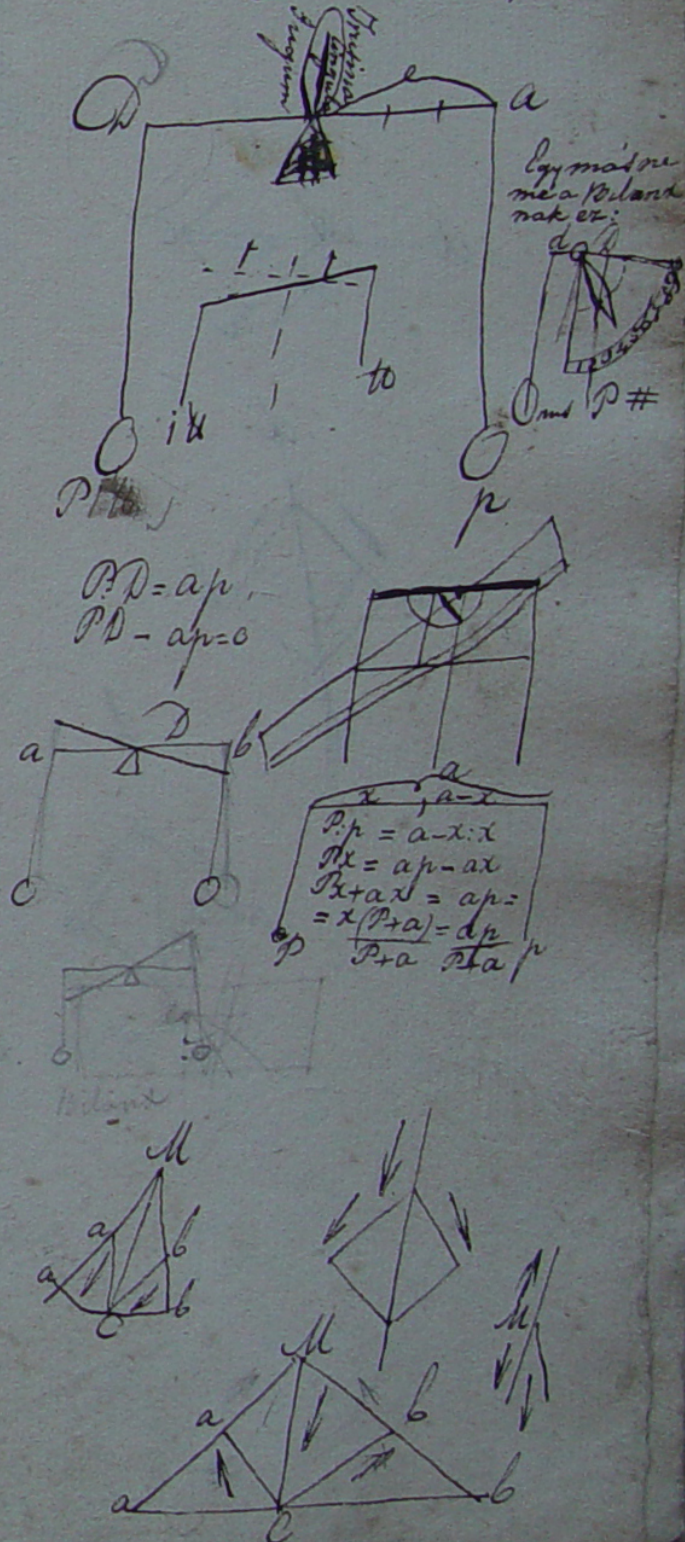 Jugum
D a
Egy más ne
me a Bilanx
nak ez:
P #
P p
P.D = ap
PD - ap = 0
a D b
a
x , a-x
P:p = a-x:x
Px = ap-ax
Px+ax = ap=
= x(P+a) = ap
P+a P+a
P p
Bilanx
M
a b
a b
C
M
M
a b
a b
C